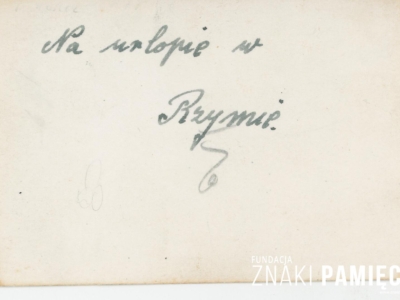 Na urlopie w
Rzymie.
FUNDACJA
ZNAKI PAMIĘC